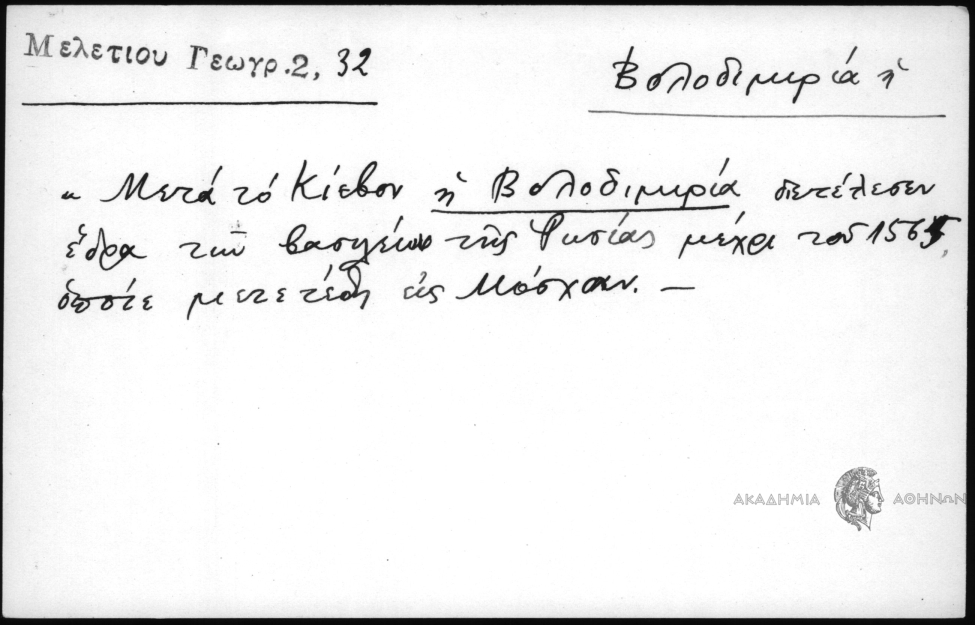 Μελετιου Γεωγρ. 2, 32
Βολοδιμηρία ἡ
« Μετά τό Κίεβον ἡ Βολοδιμηρία διετέλεσεν
ἕδρα τῶν βασιλείων τῆς Ρωσίας μέχρι τοῦ 1565,
ὁπότε μετετέθη εἰς Μόσχαν. —
ΑΚΑΔΗΜΙΑ ΑΘΗΝΩΝ